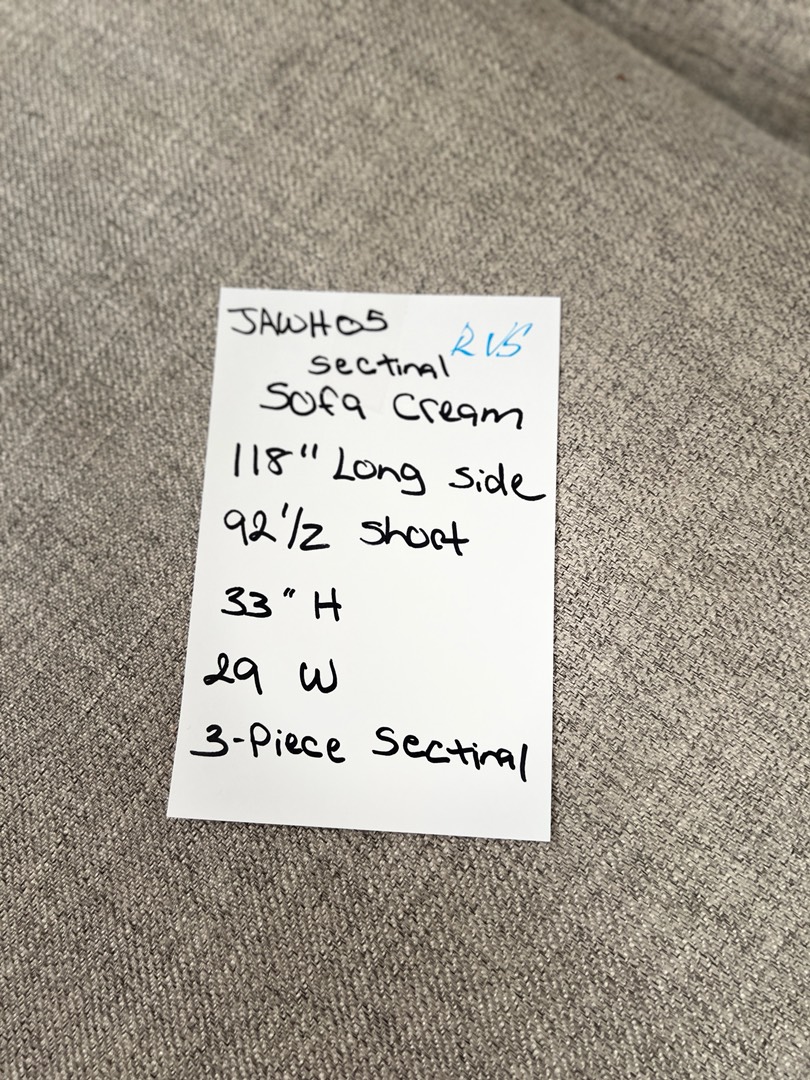 JAWH05
RVS
sectinal
Sofa Cream
118" Long side
92 1/2 short
33" H
29 W
3-Piece Sectinal